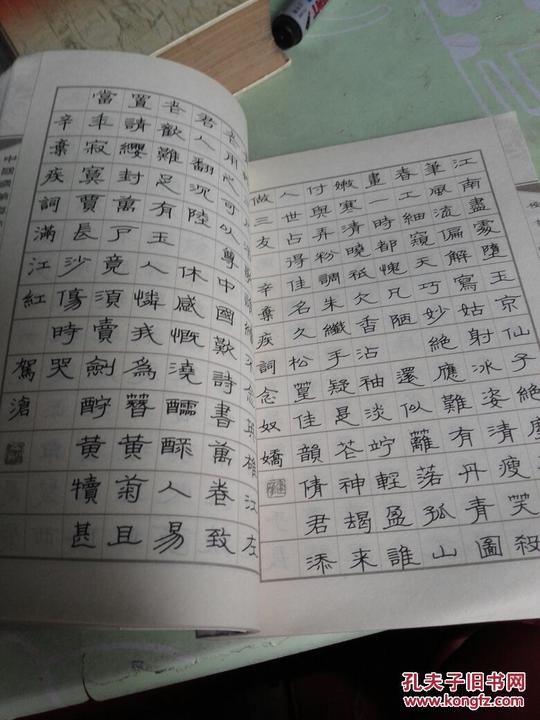 江南盡處墮玉京仙子絕塵
筆風流偏解寫姑射冰姿清瘦笑殺
春工細窺天巧妙絕應難有丹青圖
畫一時都愧凡陋還似籬落孤山
嫩寒清曉祇欠香沾袖淡竚輕盈誰
付與弄粉調朱纖手疑是花神朅來
人世占得佳名久松篁佳韻倩君添
做三友 辛棄疾詞念奴嬌
英雄江左
老用心可以尊中國歎詩書萬卷致
君人翻沉陸休感慨澆醽醁人易
老歡難足有玉人憐我為簪黃菊且
置請纓封萬戶竟須賣劍酧黃犢甚
當年寂寞賈長沙傷時哭
辛棄疾詞滿江紅 駕滄
孔夫子旧书网
www.kongfz.com